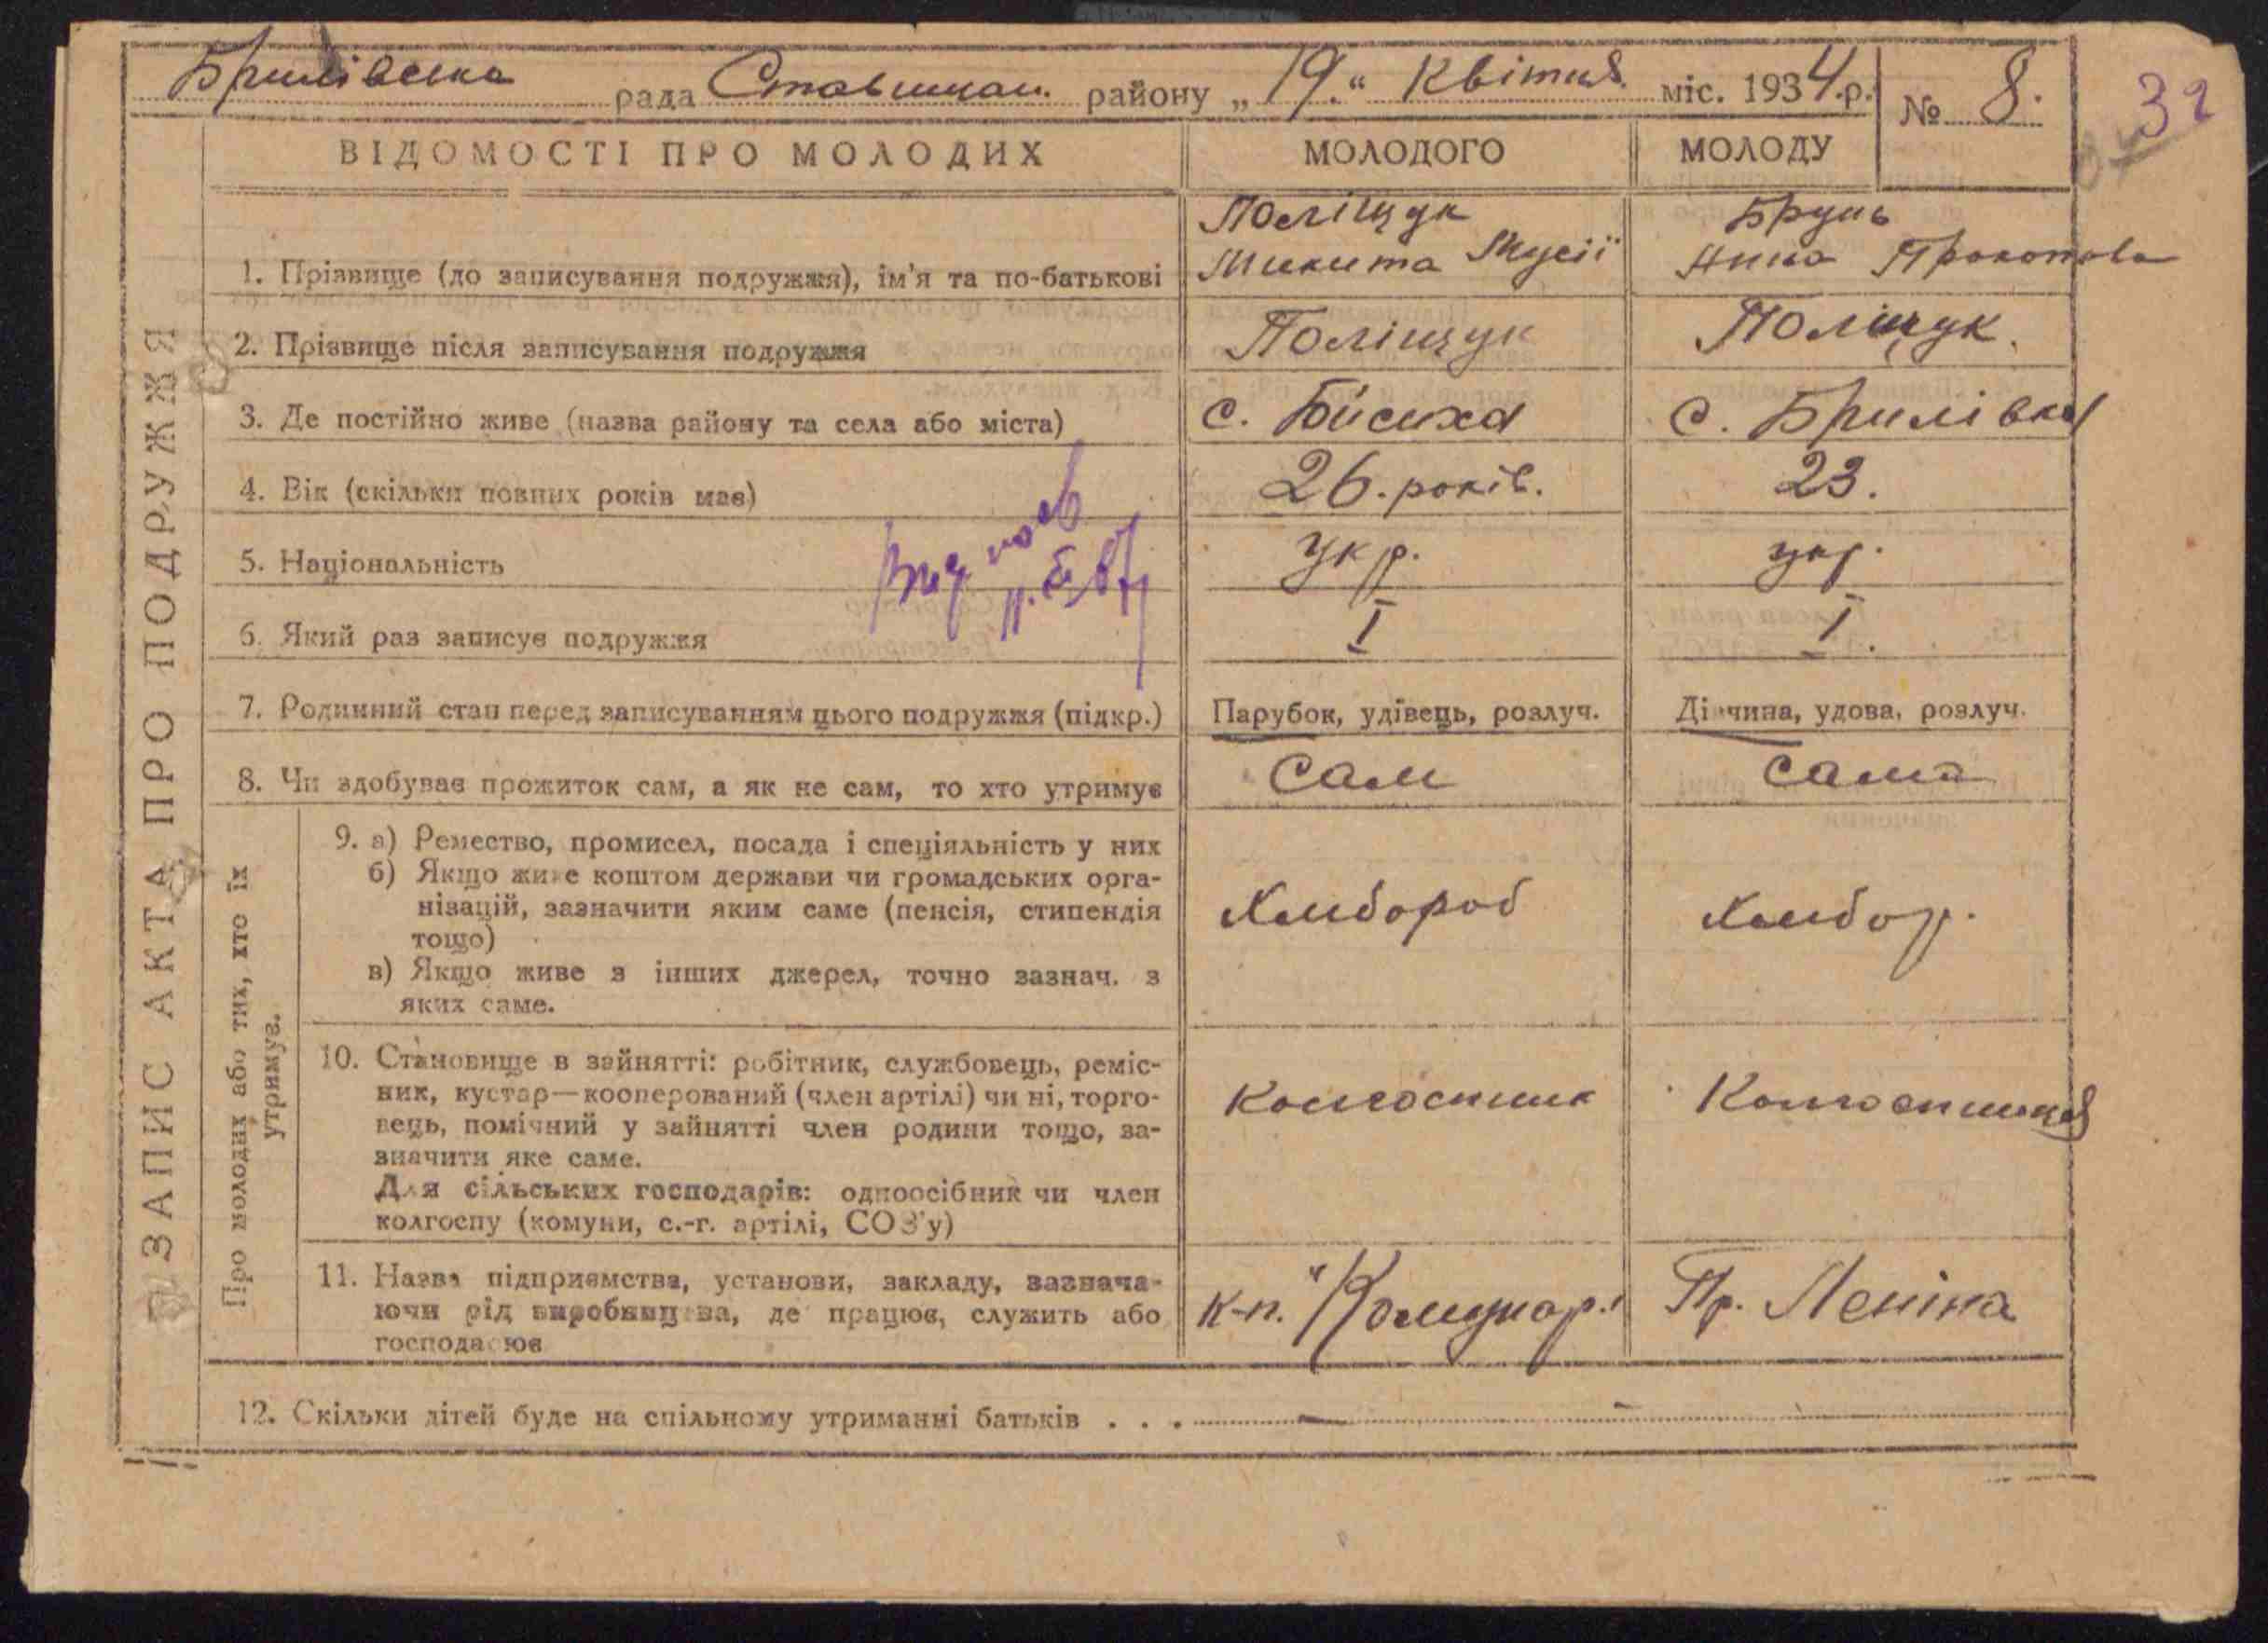 Брилівська рада Ставищан. району „19.“ Квітня міс. 1934.р. № 8.
32
ВІДОМОСТІ ПРО МОЛОДИХ МОЛОДОГО МОЛОДУ
ЗАПИС АКТА ПРО ПОДРУЖЖЯ
Поліщук Брунь
1. Прізвище (до записування подружжя), ім'я та по-батькові Микита Мусії Прокопова
2. Прізвище після записування подружжя Поліщук Поліщук.
3. Де постійно живе (назва району та села або міста) с. Бісиха с. Брилівка
4. Вік (скільки повних років має) 26. років. 23.
5. Національність укр. укр.
6. Який раз записує подружжя I I.
7. Родинний стан перед записуванням цього подружжя (підкр.) Парубок, удівець, розлуч. Дівчина, удова, розлуч.
8. Чи здобуває прожиток сам, а як не сам, то хто утримує Сам Сама
Про молодих або тих, хто їх
утримує.
9. а) Ремество, промисел, посада і спеціяльність у них
б) Якщо живе коштом держави чи громадських орга-
нізацій, зазначити яким саме (пенсія, стипендія Хлібороб Хлібор.
тощо)
в) Якщо живе з інших джерел, точно зазнач. з
яких саме.
10. Становище в зайнятті: робітник, службовець, реміс-
ник, кустар—кооперований (член артілі) чи ні, торго- Колгоспник Колгоспниця
вець, помічний у зайнятті член родини тощо, за-
значити яке саме.
Для сільських господарів: одноосібник чи член
колгоспу (комуни, с.-г. артілі, СОЗ'у)
11. Назва підприємства, установи, закладу, зазнача-
ючи рід виробництва, де працює, служить або к-п. "Комунар" Пр. Леніна
господарює
12. Скільки дітей буде на спільному утриманні батьків . . . — -